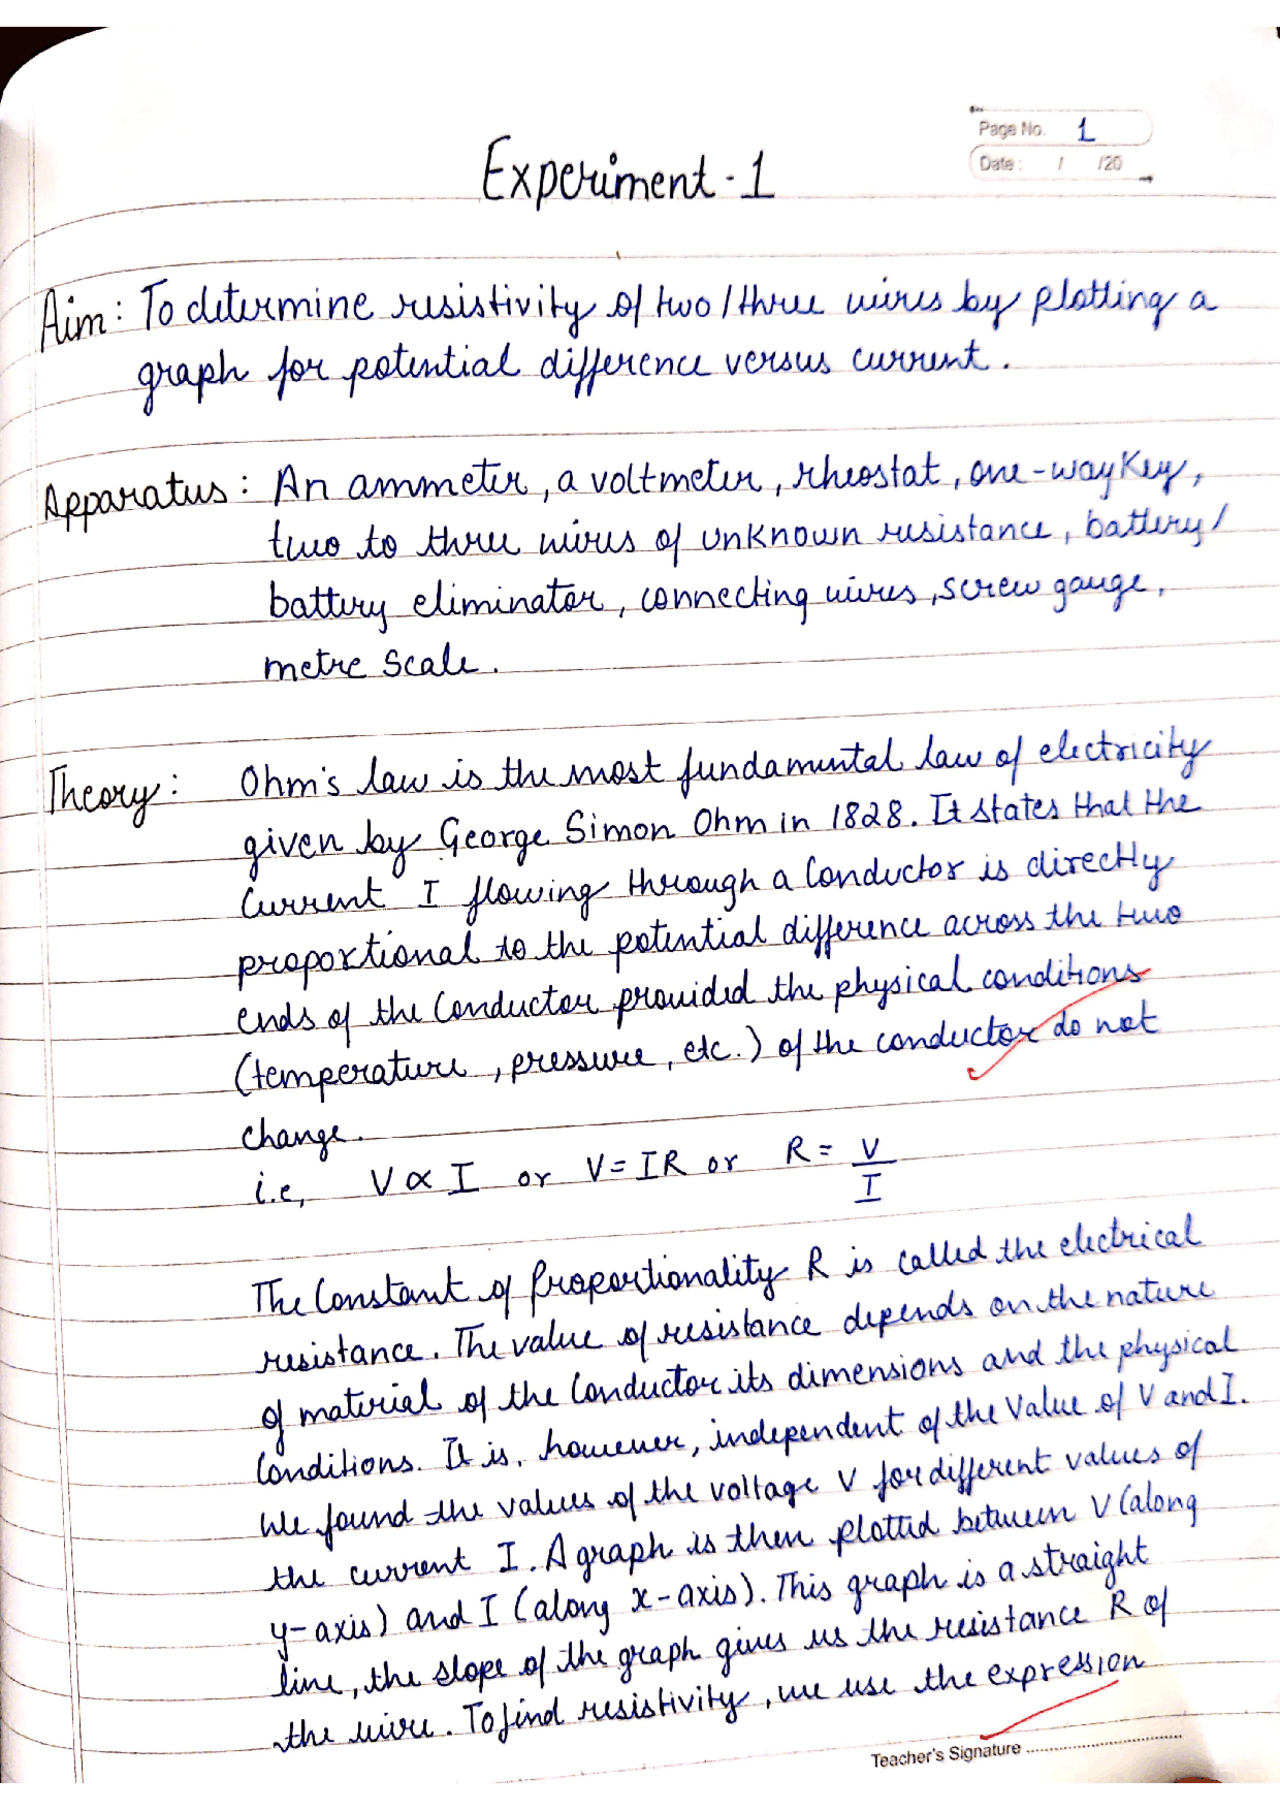 Page No. 1
Date: / /20
Experiment-1
Aim: To determine resistivity of two/three wires by plotting a
graph for potential difference versus current.
Apparatus: An ammeter, a voltmeter, rheostat, one-way Key,
two to three wires of unknown resistance, battery/
battery eliminator, connecting wires, screw gauge,
metre scale.
Theory: Ohm's law is the most fundamental law of electricity
given by George Simon Ohm in 1828. It states that the
Current I flowing through a Conductor is directly
proportional to the potential difference across the two
ends of the Conductor provided the physical conditions
(temperature, pressure, etc.) of the conductor do not
change.
i.e, V ∝ I or V = IR or R = V/I
The Constant of Proportionality R is called the electrical
resistance. The value of resistance depends on the nature
of material of the Conductor its dimensions and the physical
Conditions. It is, however, independent of the Value of V and I.
We found the values of the voltage V for different values of
the current I. A graph is then plotted between V (along
y-axis) and I (along x-axis). This graph is a straight
line, the slope of the graph gives us the resistance R of
the wire. To find resistivity, we use the expression
Teacher's Signature ..............................